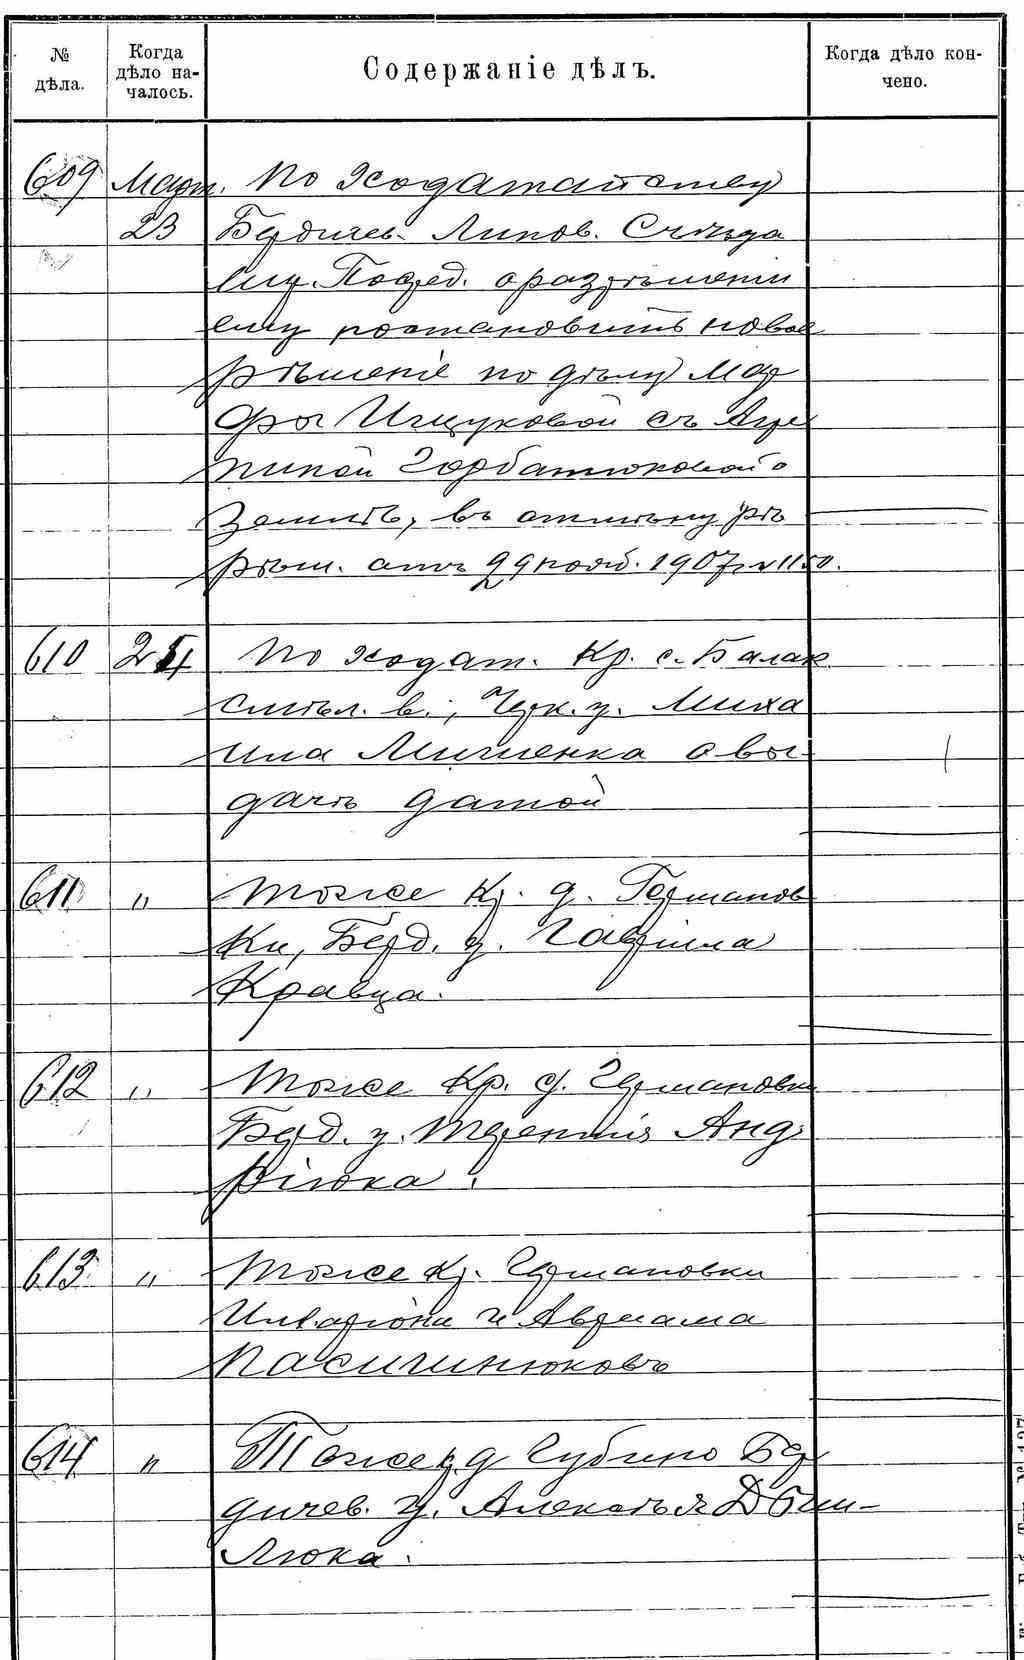 № дѣла. Когда дѣло началось. Содержаніе дѣлъ. Когда дѣло кончено.
609 Март. По ходатайству
23 Бердичев. Липов. Съѣзда
Мир. Посред. о разрѣшеніи
ему постановить новое
рѣшеніе по дѣлу Мар
фы Ищуковой съ Агри
пиной Горбатюковой о
землѣ, въ отмѣну рѣ
рѣш. отъ 29 нояб. 1907 г. № 1150.
610 24 По ходат. Кр. с. Балак
Смѣл. в., Черк. у. Миха
ила Мишенка о вы-
дачѣ датой
611 " тоже Кр. д. Германов
ки, Берд. у. Гавріила
Кравца.
612 " тоже Кр. д. Германовки
Берд. у. Терентія Анд
рiюка.
613 " тоже Кр. Германовки
Иларіона и Авраама
Пасичнюковъ
614 " Тоже кр. д Губино Бер
дичев. у. Алексѣя Дани-
люка.